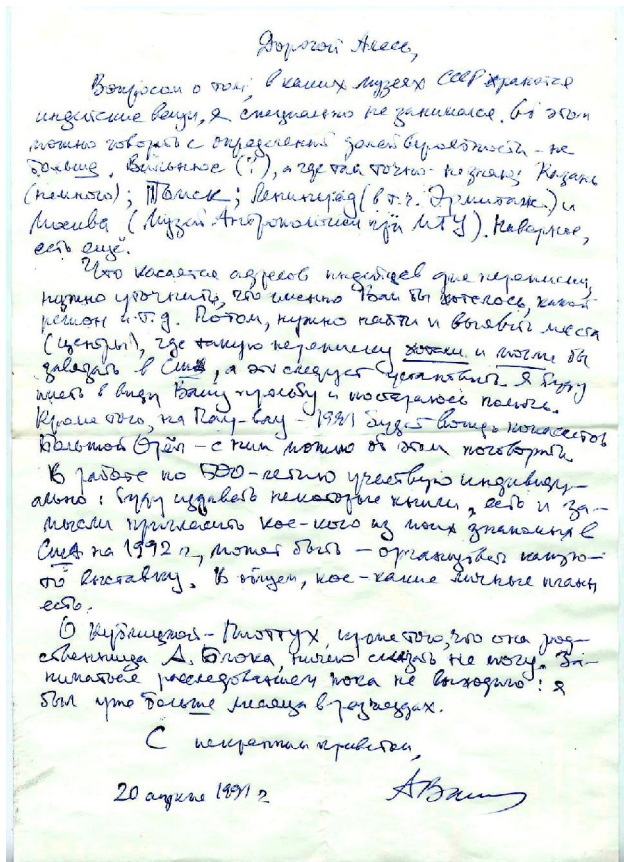 Дорогой Алесь,
Вопросом о том, в каких музеях СССР хранятся
индейские вещи, я специально не занимался. Об этом
можно говорить с определенной долей вероятности – не
больше. Вильнюс (?), а где там точно – не знаю; Казань
(немного); Томск; Ленинград (в т.ч. Эрмитаж) и
Москва (Музей Антропологии при МГУ). Наверное,
есть ещё.
Что касается адресов индейцев для переписки,
нужно уточнить, что именно Вам бы хотелось, какой
регион и т.д. Потом, нужно найти и выявить места
(центры), где такую переписку хотели и могли бы
завязать в США, а это следует установить. Я буду
иметь в виду Вашу просьбу и постараюсь помочь.
Кроме того, на Пау-вау – 1991 будет вождь
Большой Орёл – с ним можно об этом поговорить.
В работе по 500-летию участвую индивиду-
ально: буду издавать некоторые книги, есть и за-
мысли пригласить кое-кого из моих знакомых в
США на 1992 г., может быть – организовать какую-
то выставку. В общем, кое-какие личные планы
есть.
О Кублицкой-Пиоттух, кроме того, что она род-
ственница А. Блока, ничего сказать не могу. За-
ниматься расследованием пока не выходило: я
был уже больше месяца в разъездах.
С искренним приветом,
20 апреля 1991 г